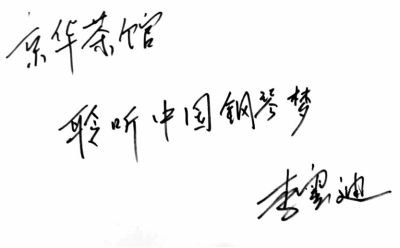 京华茶馆
聆听中国钢琴梦
李云迪